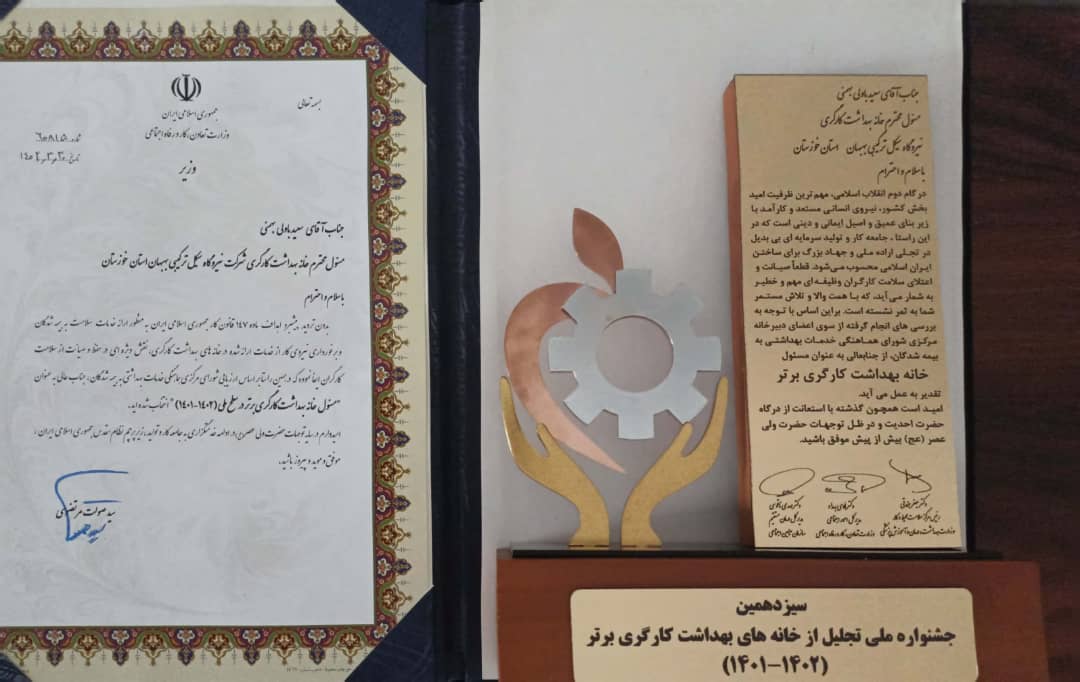 بسمه تعالی
جمهوری اسلامی ایران
وزارت تعاون، کار و رفاه اجتماعی
وزیر
شماره
تاریخ
جناب آقای سعید باولی بهمئی
مسئول محترم خانه بهداشت کارگری شرکت نیروگاه سیکل ترکیبی بهبهان استان خوزستان
با سلام و احترام
بدون تردید، پیشبرد اهداف ماده ۱۴۷ قانون کار جمهوری اسلامی ایران به منظور ارائه خدمات سلامت به بیمه شدگان
و برخورداری نیروی کار از خدمات ارائه شده در خانه های بهداشت کارگری، نقش ویژه ای در حفظ و صیانت از سلامت
کارگران ایفا نموده که در همین راستا بر اساس ارزیابی شورای مرکزی هماهنگی خدمات بهداشتی به بیمه شدگان، جناب عالی به عنوان
"مسئول خانه بهداشت کارگری برتر در سطح ملی (۱۴۰۲-۱۴۰۱)" انتخاب شده اید.
امیدوارم در سایه توجهات حضرت ولی عصر(عج) در ادامه خدمتگزاری به جامعه کار و تولید، زیر پرچم نظام مقدس جمهوری اسلامی ایران،
موفق و موید و پیروز باشید.
سید صولت مرتضوی
جناب آقای سعید باولی بهمئی
مسئول محترم خانه بهداشت کارگری
نیروگاه سیکل ترکیبی بهبهان استان خوزستان
با سلام و احترام
در گام دوم انقلاب اسلامی، مهم ترین ظرفیت امید
بخش کشور، نیروی انسانی مستعد و کارآمد با
زیر بنای عمیق و اصیل ایمانی و دینی است که در
این راستا ، جامعه کار و تولید سرمایه ای بی بدیل
در تجلی اراده ملی و جهاد بزرگ برای ساختن
ایران اسلامی محسوب می‌شود. قطعاً صیانت و
اعتلای سلامت کارگران وظیفه ای مهم و خطیر
به شمار می آید، که با همت والا و تلاش مستمر
شما به ثمر نشسته است. براین اساس با توجه به
بررسی های انجام گرفته از سوی اعضای دبیرخانه
مرکزی شورای هماهنگی خدمات بهداشتی به
بیمه شدگان، از جنابعالی به عنوان مسئول
خانه بهداشت کارگری برتر
تقدیر به عمل می آید.
امید است همچون گذشته با استعانت از درگاه
حضرت احدیت و در ظل توجهات حضرت ولی
عصر (عج) بیش از پیش موفق باشید.
وزارت بهداشت، درمان و آموزش پزشکی
وزارت تعاون، کار و رفاه اجتماعی
سازمان تامین اجتماعی
سیزدهمین
جشنواره ملی تجلیل از خانه های بهداشت کارگری برتر
(۱۴۰۱-۱۴۰۲)